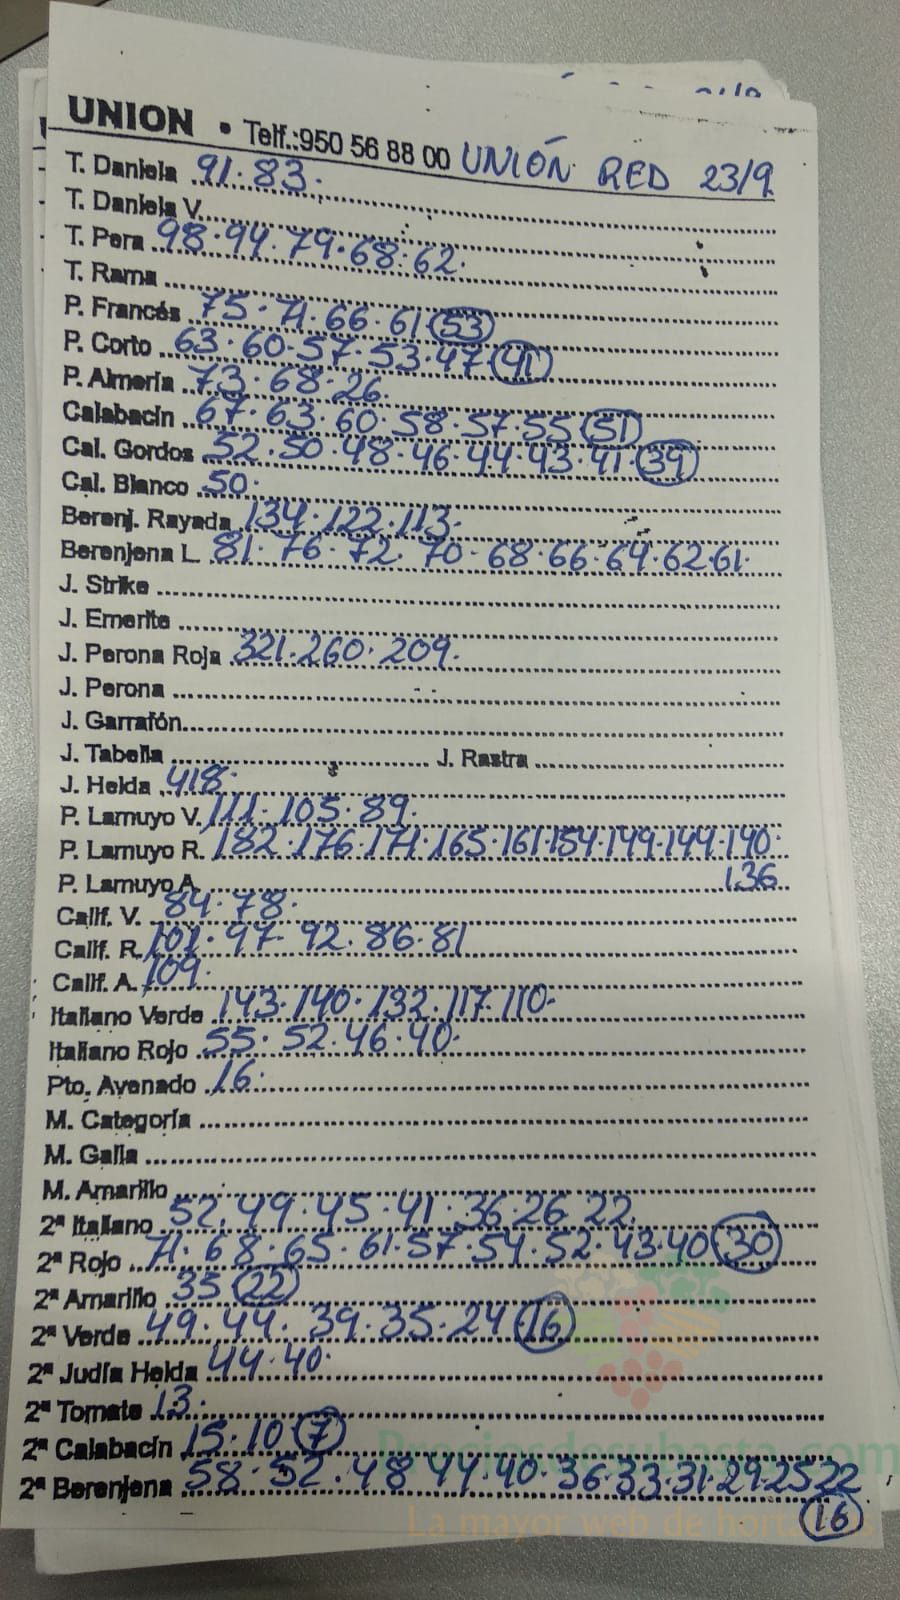 UNION • Telf.:950 56 88 00 UNIÓN RED 23/9
T. Daniela 91·83·
T. Daniela V.
T. Pera 98·94·79·68·62·
T. Rama
P. Francés 75·71·66·61 53
P. Corto 63·60·57·53·47·41
P. Almería 73·68·26.
Calabacín 67·63·60·58·57·55 51
Cal. Gordos 52·50·48·46·44·43·41·39
Cal. Blanco 50·
Berenj. Rayada 134·122·113·
Berenjena L 81·76·72·70·68·66·64·62·61·
J. Strike
J. Emerite
J. Perona Roja 321·260·209·
J. Perona
J. Garrafón
J. Tabella J. Rastra
J. Helda 418·
P. Lamuyo V. 111·105·89·
P. Lamuyo R. 182·176·171·165·161·154·149·144·140·
P. Lamuyo A. 136
Calif. V. 84·78·
Calif. R. 101·97·92·86·81
Calif. A. 109·
Italiano Verde 143·140·132·117·110·
Italiano Rojo 55·52·46·40·
Pto. Avenado 16·
M. Categoría
M. Galia
M. Amarillo
2ª Italiano 52·49·45·41·36·26·22.
2ª Rojo 71·68·65·61·57·54·52·43·40 30
2ª Amarillo 35 22
2ª Verde 49·44·39·35·24 16
2ª Judía Helda 44·40·
2ª Tomate 13·
2ª Calabacín 15·10·7
Preciosdesubasta.com
2ª Berenjena 58·52·48·44·40·36·33·31·29·25·22
16
La mayor web de hortalizas